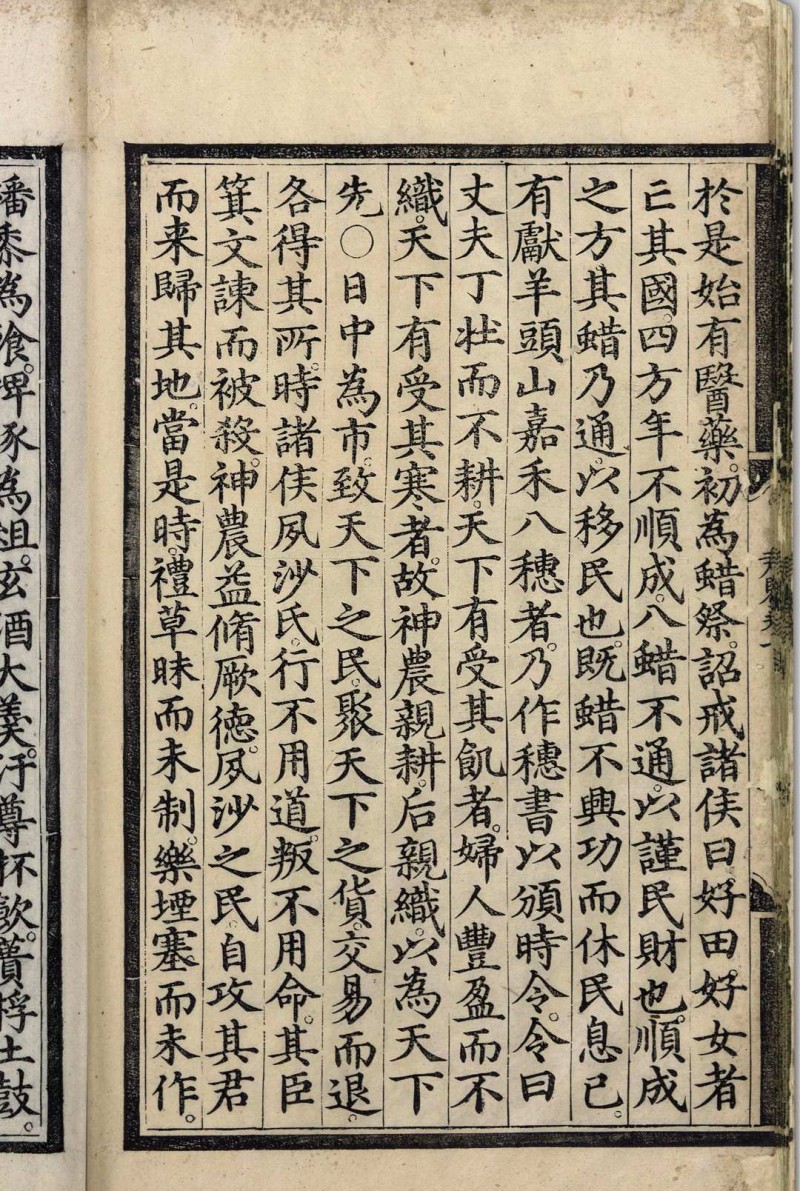 於是始有醫藥。初為蜡祭。詔戒諸侯曰。好田好女者
亡其國。四方年不順成。八蜡不通。以謹民財也。順成
之方其蜡乃通。以移民也。既蜡不興功而休民息已。
有獻羊頭山嘉禾八穗者。乃作穗書以頒時令。令曰
丈夫丁壯而不耕。天下有受其飢者。婦人豐盈而不
織。天下有受其寒者。故神農親耕。后親織。以為天下
先〇日中為市。致天下之民。聚天下之貨。交易而退。
各得其所。時諸侯夙沙氏。行不用道。叛不用命。其臣
箕文諫而被殺。神農益脩厥德。夙沙之民。自攻其君
而来歸其地。當是時。禮草昧而未制。樂堙塞而未作。
黍為飡。捭豕為俎。玄酒大羹。汙尊杯飲。蕢桴土鼓。